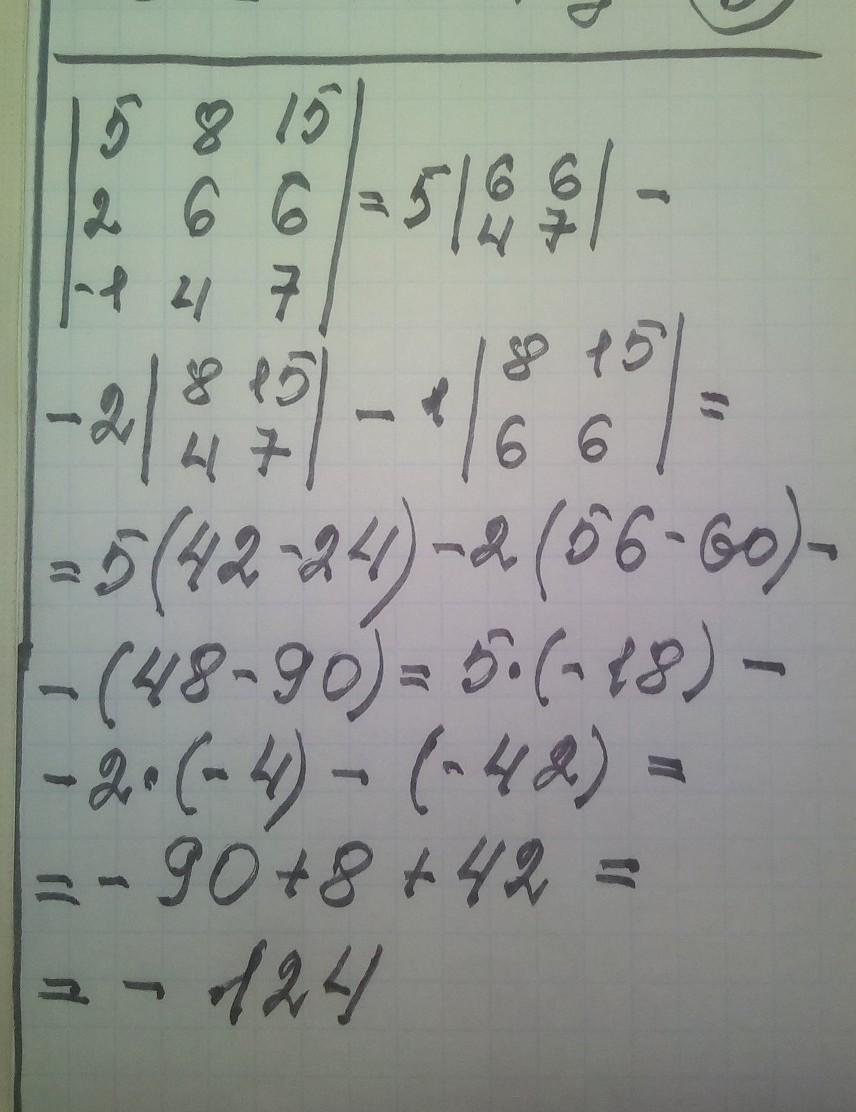 |5 8 15|
|2 6 6| = 5|6 6| −
|-1 4 7| |4 7|
− 2|8 15| − 1|8 15| =
|4 7| |6 6|
= 5(42 - 24) − 2(56 - 60) −
− (48 - 90) = 5·(-18) −
− 2·(-4) − (-42) =
= - 90 + 8 + 42 =
= − 124